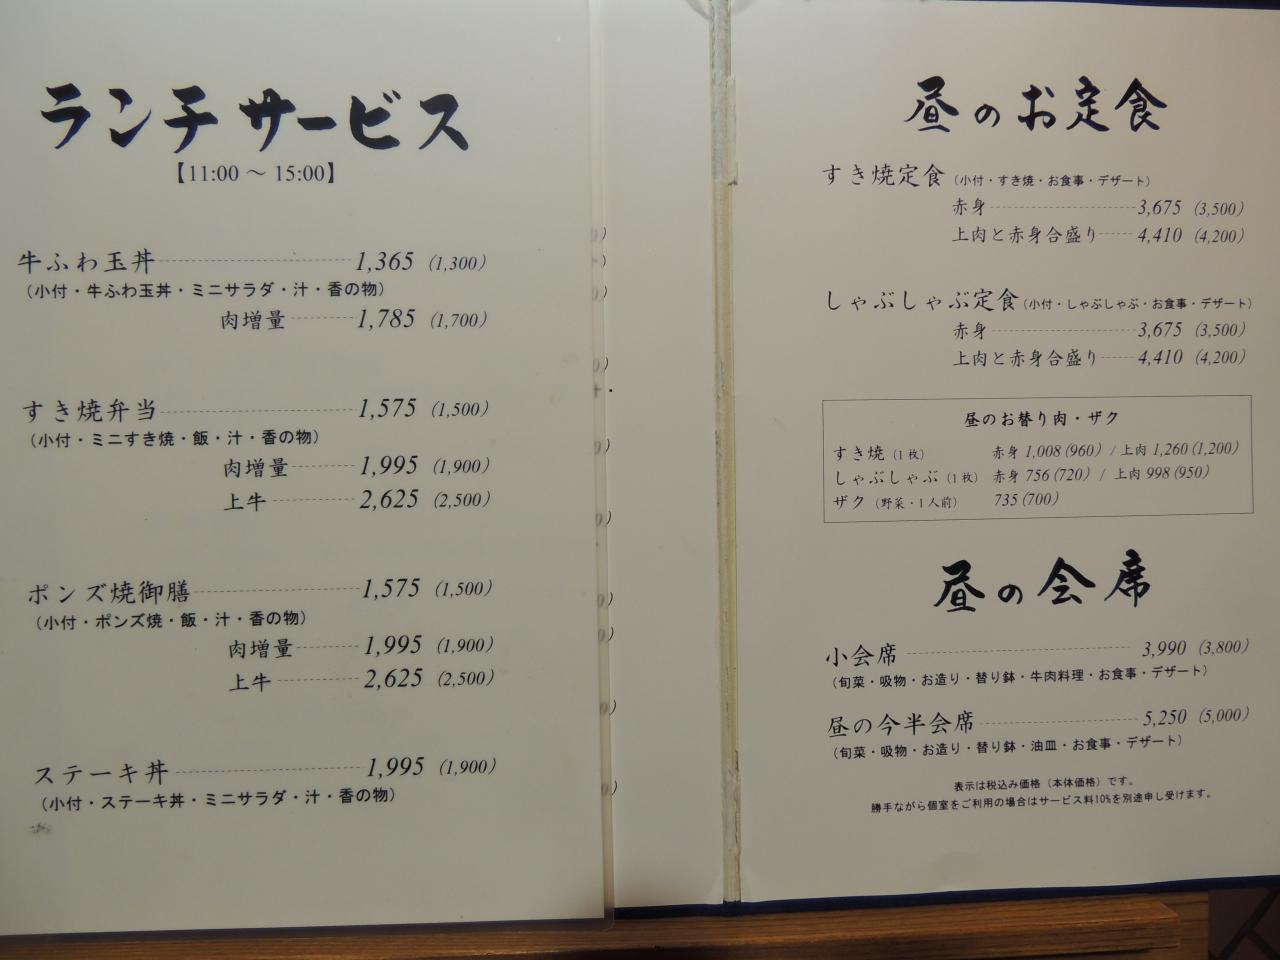 ランチサービス
【11:00 ～ 15:00】
牛ふわ玉丼 1,365 (1,300)
(小付・牛ふわ玉丼・ミニサラダ・汁・香の物)
肉増量 1,785 (1,700)
すき焼弁当 1,575 (1,500)
(小付・ミニすき焼・飯・汁・香の物)
肉増量 1,995 (1,900)
上牛 2,625 (2,500)
ポンズ焼御膳 1,575 (1,500)
(小付・ポンズ焼・飯・汁・香の物)
肉増量 1,995 (1,900)
上牛 2,625 (2,500)
ステーキ丼 1,995 (1,900)
(小付・ステーキ丼・ミニサラダ・汁・香の物)
昼のお定食
すき焼定食 (小付・すき焼・お食事・デザート)
赤身 3,675 (3,500)
上肉と赤身合盛り 4,410 (4,200)
しゃぶしゃぶ定食 (小付・しゃぶしゃぶ・お食事・デザート)
赤身 3,675 (3,500)
上肉と赤身合盛り 4,410 (4,200)
昼のお替り肉・ザク
すき焼 (1枚) 赤身 1,008 (960) / 上肉 1,260 (1,200)
しゃぶしゃぶ (1枚) 赤身 756 (720) / 上肉 998 (950)
ザク (野菜・1人前) 735 (700)
昼の会席
小会席 3,990 (3,800)
(旬菜・吸物・お造り・替り鉢・牛肉料理・お食事・デザート)
昼の今半会席 5,250 (5,000)
(旬菜・吸物・お造り・替り鉢・油皿・お食事・デザート)
表示は税込み価格（本体価格）です。
勝手ながら個室をご利用の場合はサービス料10%を別途申し受けます。